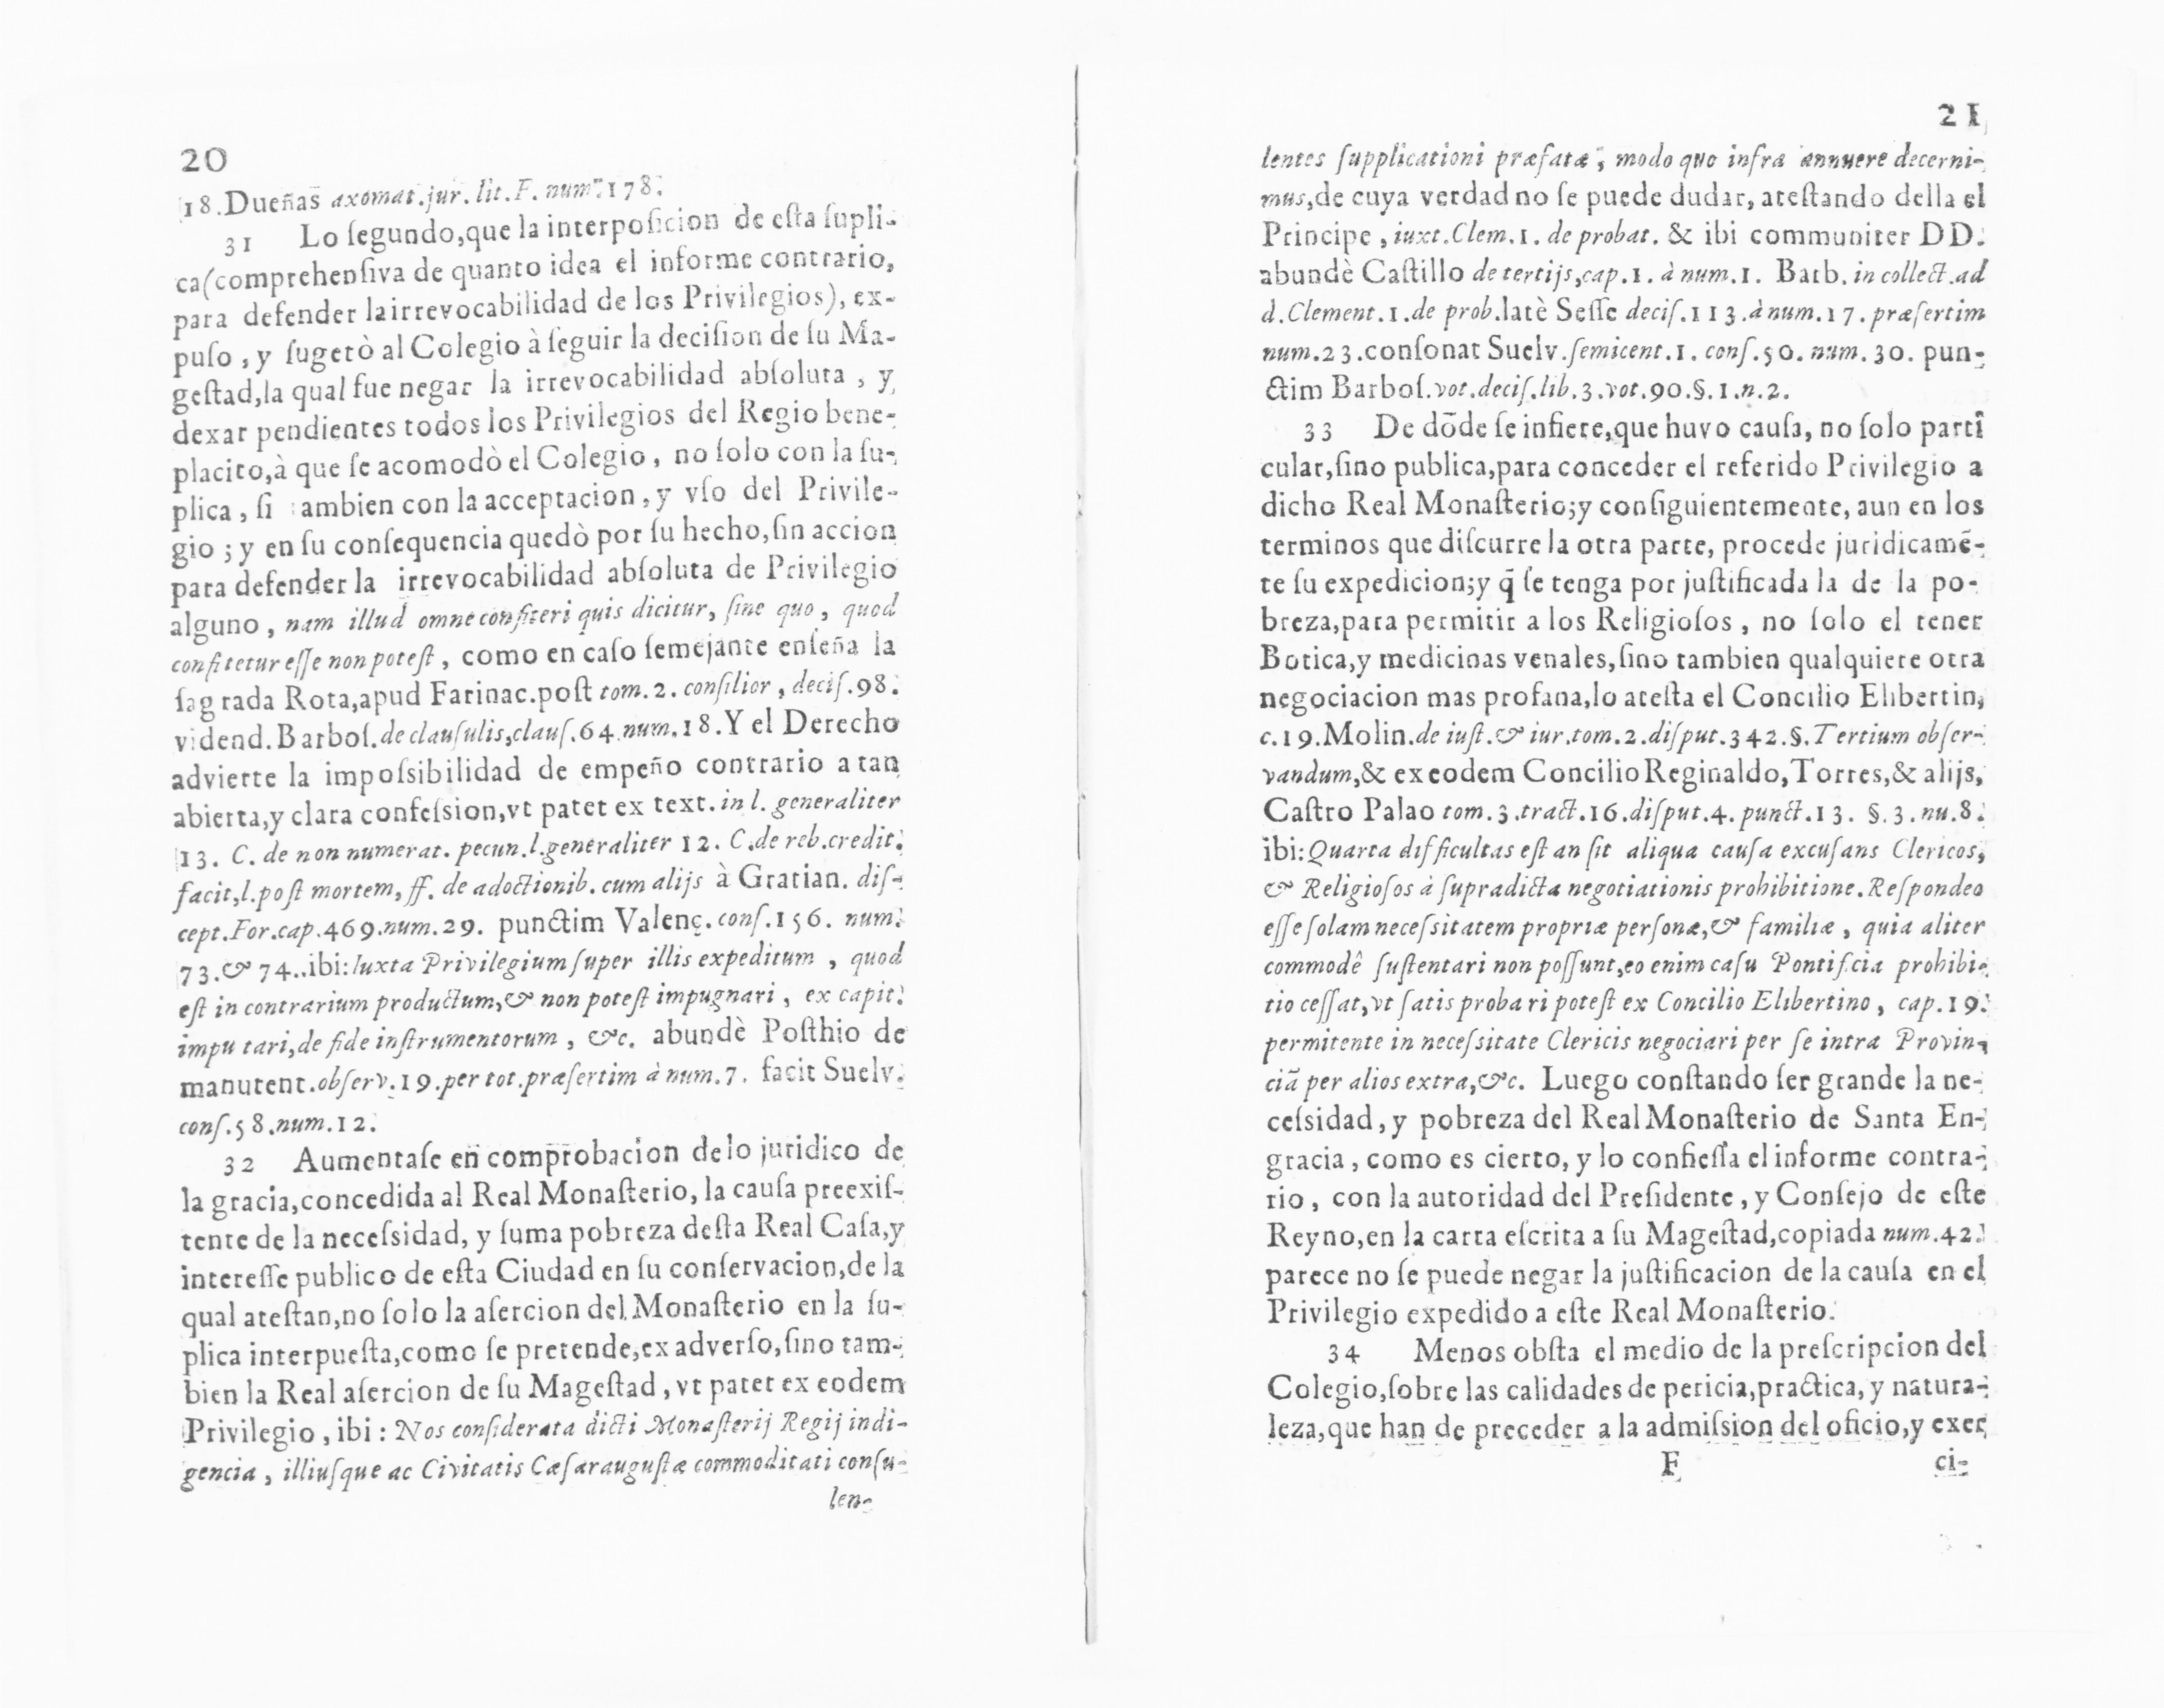 20
18.Dueñas axomat.jur.lit.F.num.178.
31 Lo segundo,que la interposicion de esta supli-
ca(comprehensiva de quanto idea el informe contrario,
para defender la irrevocabilidad de los Privilegios), ex-
puso, y sugetò al Colegio à seguir la decision de su Ma-
gestad,la qual fue negar la irrevocabilidad absoluta, y
dexar pendientes todos los Privilegios del Regio bene-
placito,à que se acomodò el Colegio, no solo con la su-
plica, si ambien con la acceptacion, y vso del Privile-
gio; y en su consequencia quedò por su hecho,sin accion
para defender la irrevocabilidad absoluta de Privilegio
alguno, nam illud omne confiteri quis dicitur, sine quo, quod
confitetur esse non potest, como en caso semejante enseña la
sagrada Rota,apud Farinac.post tom.2. consilior, decis.98.
vidend.Barbos.de clausulis,claus.64.num.18.Y el Derecho
advierte la impossibilidad de empeño contrario a tan
abierta,y clara confession,vt patet ex text.in l. generaliter
13. C. de non numerat. pecun.l.generaliter 12. C.de reb.credit.
facit,l.post mortem, ff. de adoctionib. cum alijs à Gratian. dis-
cept.For.cap.469.num.29. punctim Valenç.cons.156. num.
73.& 74..ibi:Iuxta Privilegium super illis expeditum, quod
est in contrarium productum,& non potest impugnari, ex capit.
imputari,de fide instrumentorum, &c. abundè Posthio de
manutent.observ.19.per tot.præsertim à num.7. facit Suelv.
cons.58.num.12.
32 Aumentase en comprobacion de lo juridico de
la gracia,concedida al Real Monasterio, la causa preexis-
tente de la necessidad, y suma pobreza desta Real Casa,y
interesse publico de esta Ciudad en su conservacion,de la
qual atestan,no solo la asercion del Monasterio en la su-
plica interpuesta,como se pretende,ex adverso,sino tam-
bien la Real asercion de su Magestad, vt patet ex eodem
Privilegio, ibi: Nos considerata dicti Monasterij Regij indi-
gencia, illiusque ac Civitatis Cæsaraugustæ commoditati consu-
len-
21
lentes supplicationi præfatæ, modo quo infra annuere decerni-
mus,de cuya verdad no se puede dudar, atestando della el
Principe, iuxt.Clem.1. de probat. & ibi communiter DD.
abundè Castillo de tertijs,cap.1. à num.1. Barb. in collect.ad
d.Clement.1.de prob.latè Sesse decis.113.à num.17.præsertim
num.23.consonat Suelv.semicent.1. cons.50. num.30. pun-
ctim Barbos.vot.decis.lib.3.vot.90.§.1.n.2.
33 De dõde se infiere,que huvo causa, no solo parti
cular,sino publica,para conceder el referido Privilegio a
dicho Real Monasterio;y consiguientemente, aun en los
terminos que discurre la otra parte, procede juridicamẽ-
te su expedicion;y q̃ se tenga por justificada la de la po-
breza,para permitir a los Religiosos, no solo el tener
Botica,y medicinas venales,sino tambien qualquiere otra
negociacion mas profana,lo atesta el Concilio Elibertin,
c.19.Molin.de iust.& iur.tom.2.disput.342.§.Tertium obser-
vandum,& ex eodem Concilio Reginaldo,Torres,& alijs,
Castro Palao tom.3.tract.16.disput.4.punct.13. §.3.nu.8.
ibi:Quarta difficultas est an sit aliqua causa excusans Clericos,
& Religiosos à supradicta negotiationis prohibitione.Respondeo
esse solam necessitatem propriæ personæ,& familiæ, quia aliter
commodê sustentari non possunt,eo enim casu Pontificia prohibi-
tio cessat,vt satis probari potest ex Concilio Elibertino, cap.19.
permitente in necessitate Clericis negociari per se intra Provin-
ciã per alios extra,&c. Luego constando ser grande la ne-
cessidad, y pobreza del Real Monasterio de Santa En-
gracia, como es cierto, y lo confiessa el informe contra-
rio, con la autoridad del Presidente, y Consejo de este
Reyno,en la carta escrita a su Magestad,copiada num.42.
parece no se puede negar la justificacion de la causa en el
Privilegio expedido a este Real Monasterio.
34 Menos obsta el medio de la prescripcion del
Colegio,sobre las calidades de pericia,practica, y natura-
leza,que han de preceder a la admission del oficio,y exer
F ci-